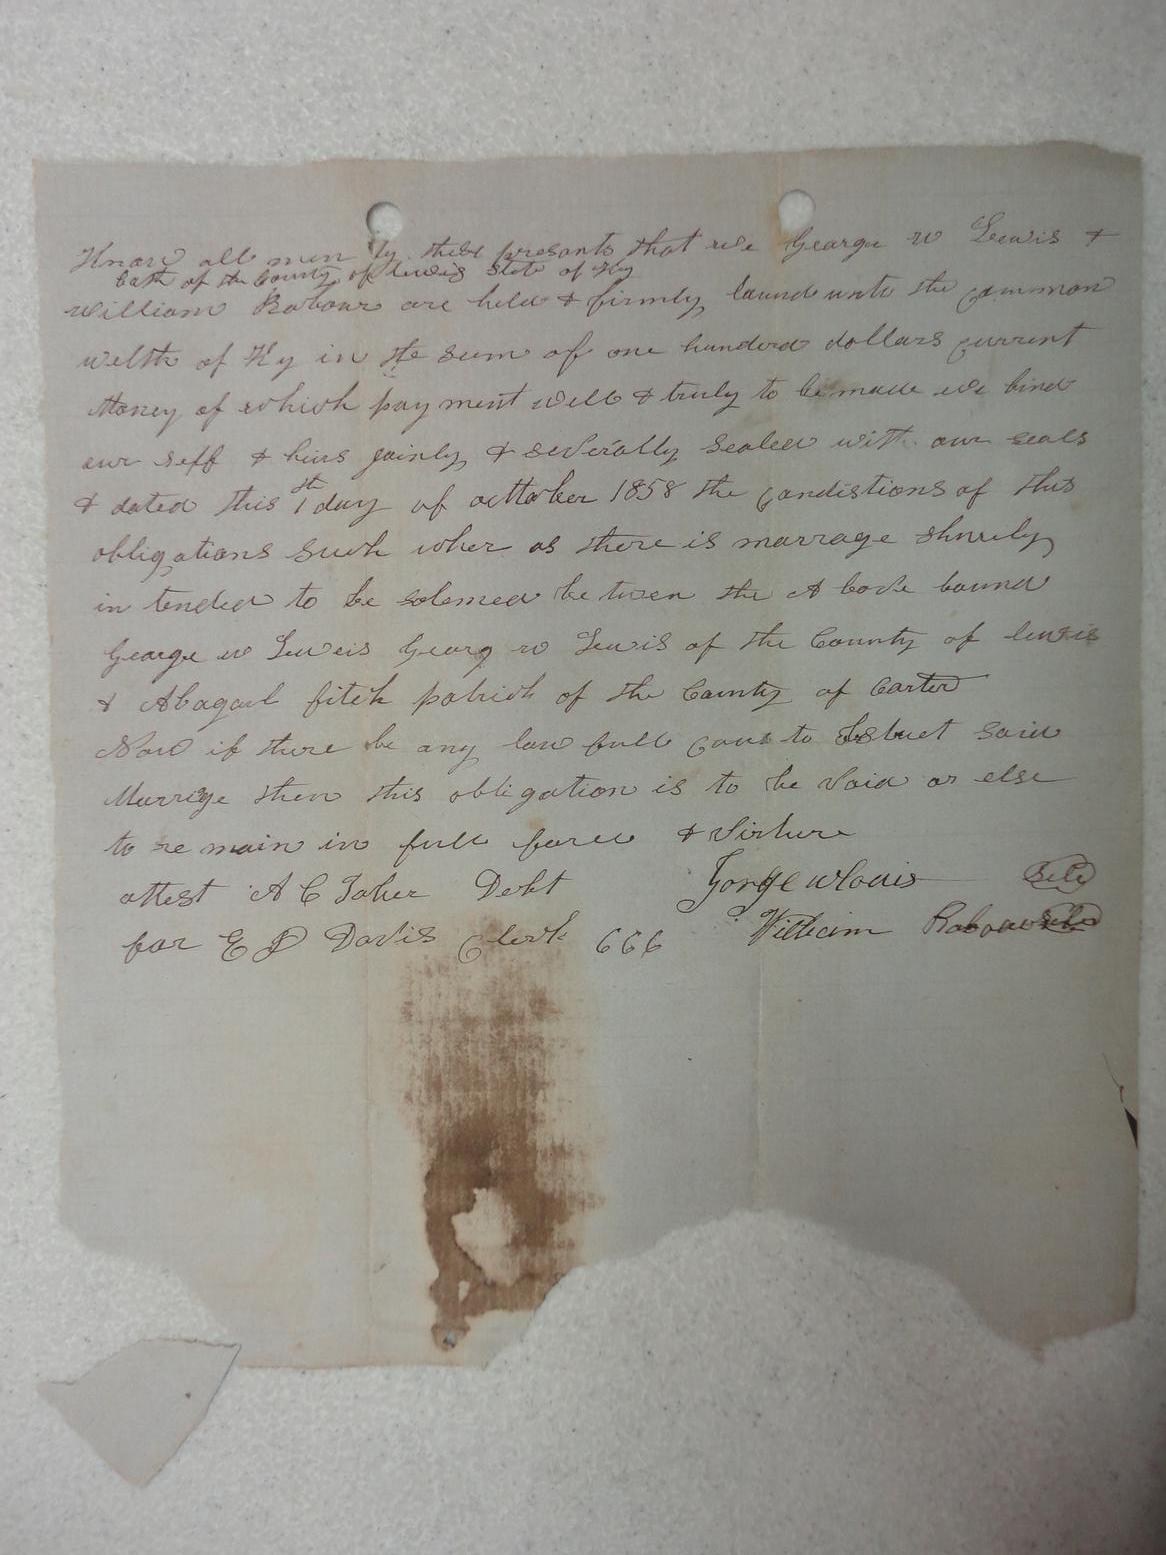 Know all men by these presants that we George w Leewis &
both of the County of lewis state of Ky
William Rabour are held & firmly bound unto the common
welth of Ky in the sum of one hundred dollars current
Money of which pay ment well & truly to be made we bind
our seff & hirs joinly & severally Sealed with our seals
& dated this 1th day of acttober 1858 the condistions of this
obligations Such wher as there is marrage shurely
in tended to be solemed be twen the A bove bound
George w Leweis Georg w Lewis of the County of lewis
& Abagail fitch patrick of the County of Carter
Now if there be any law full to said
Marrige then this obligation is to be void or else
to re main in full force & virture
attest A C Debt Gorge w louis
for E D Davis Clerk 666 William Rabour